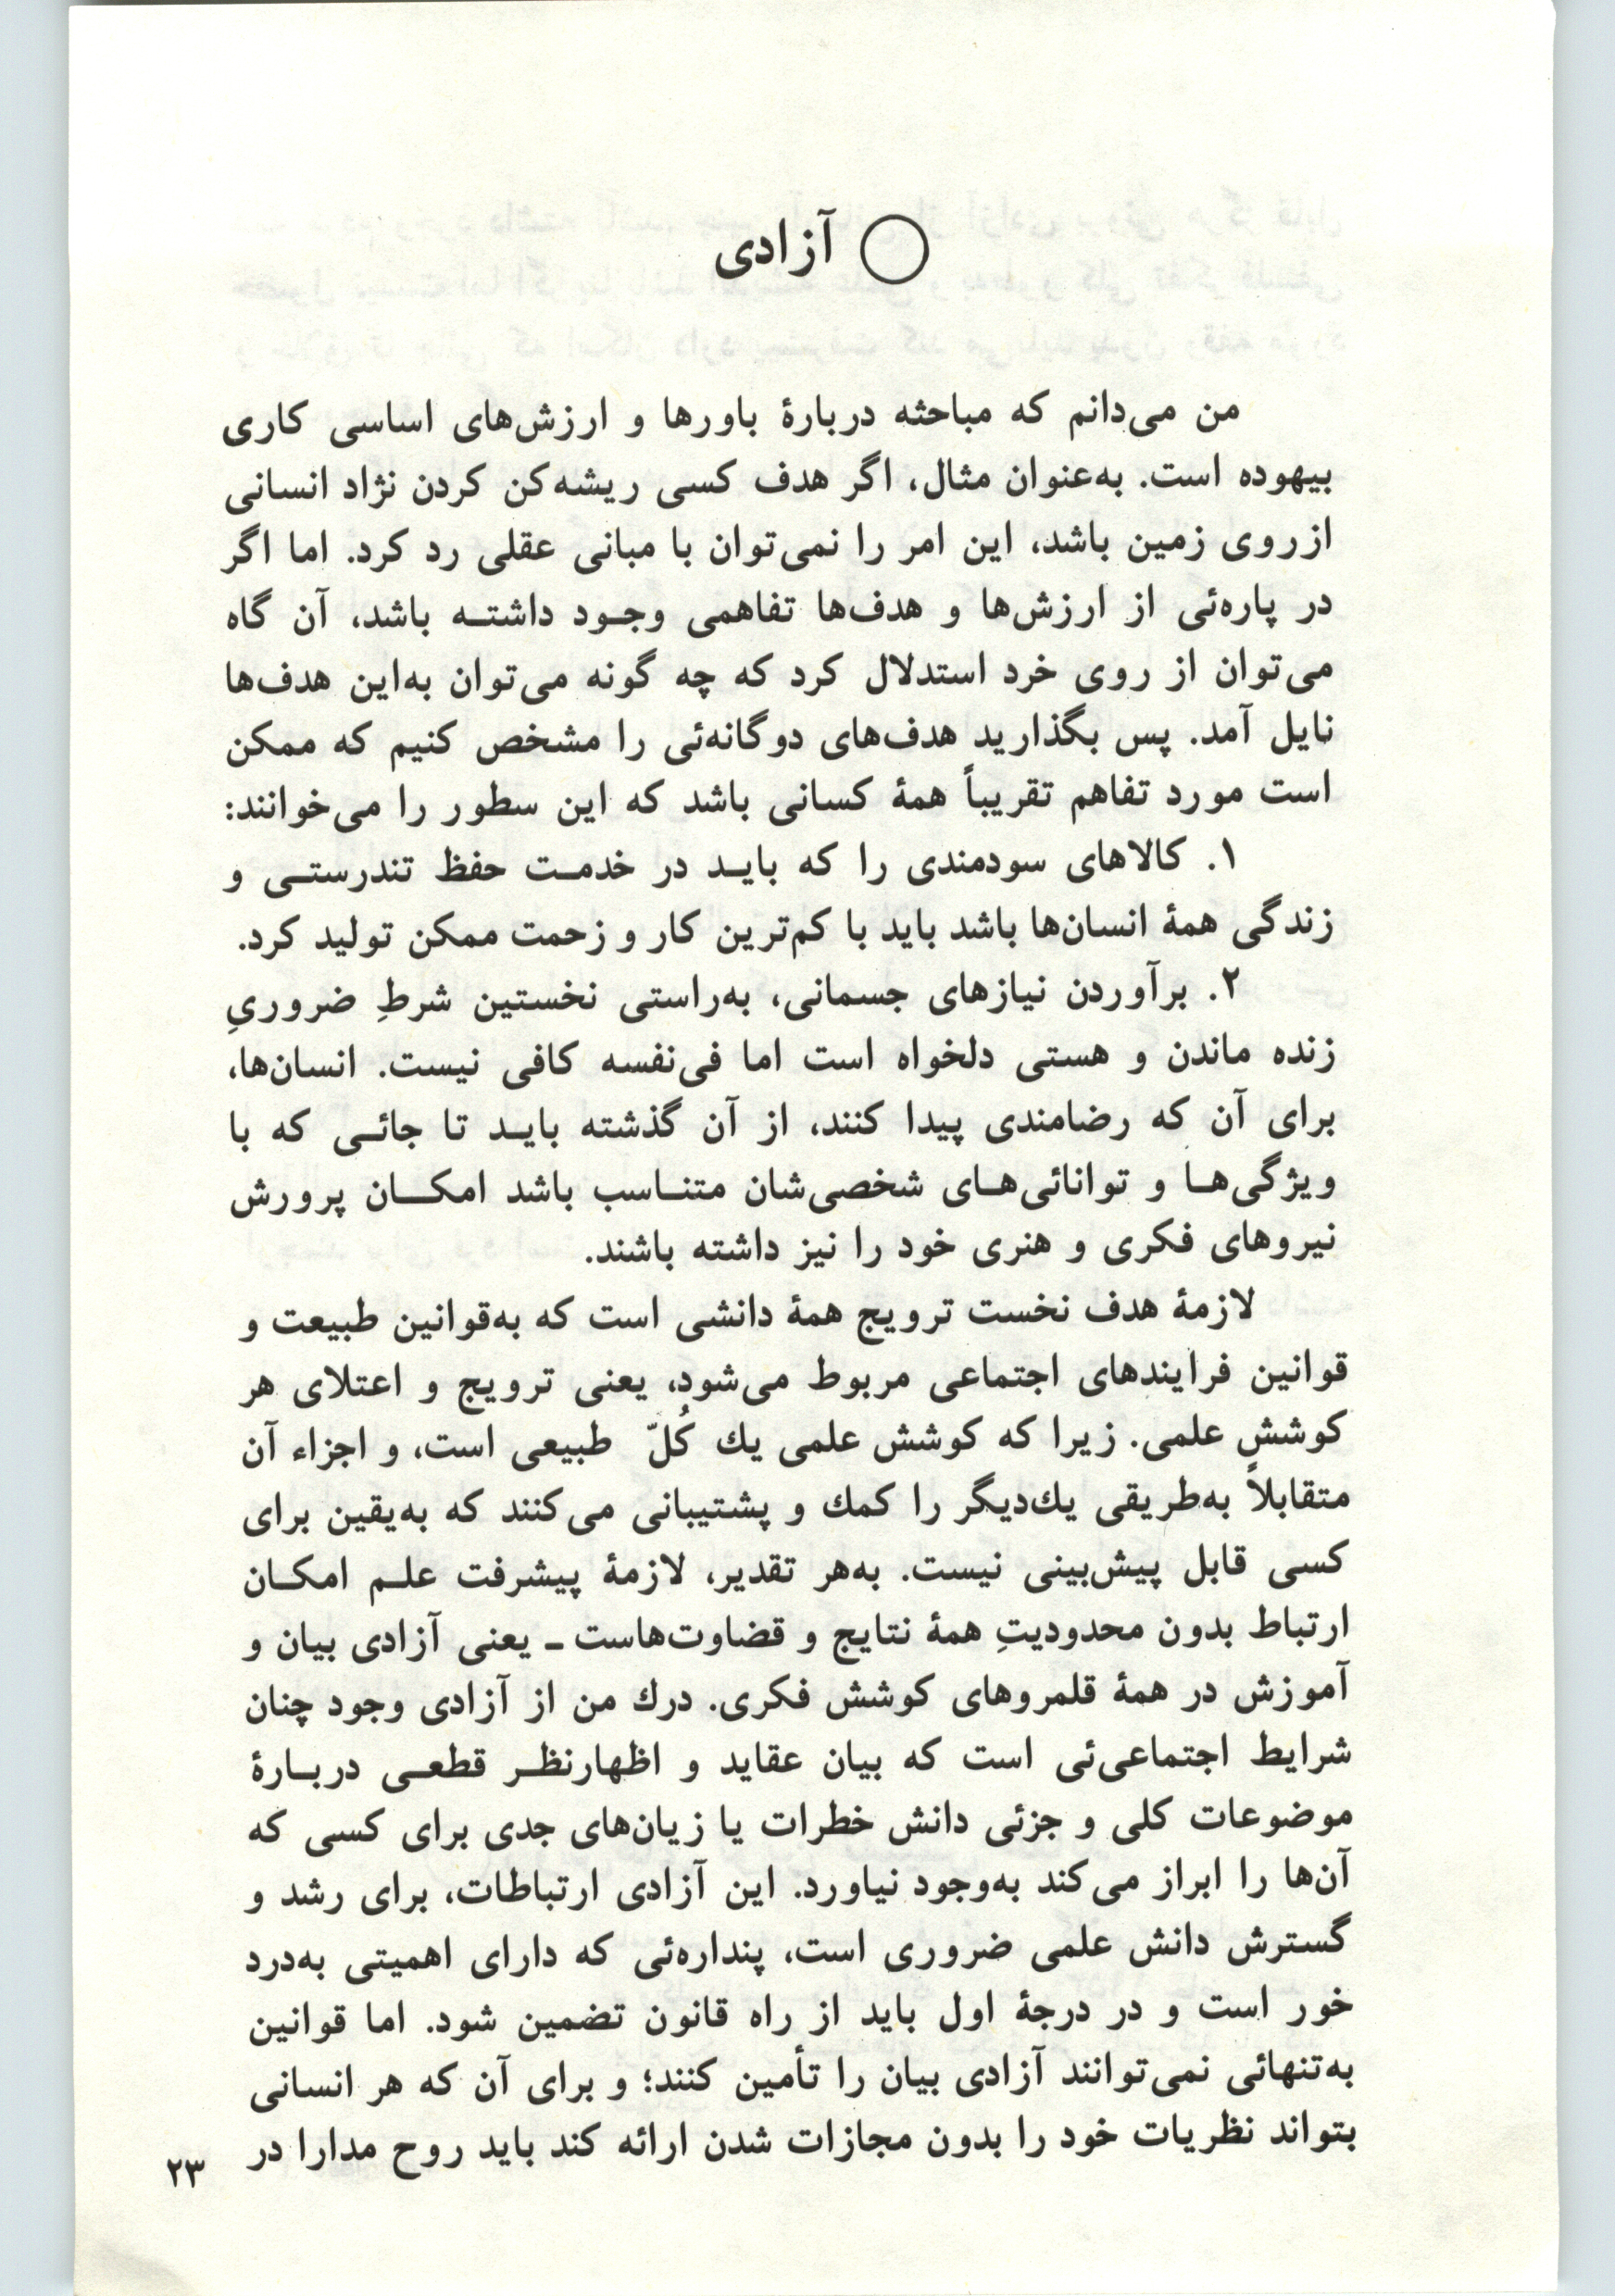 آزادی
من می‌دانم که مباحثه دربارهٔ باورها و ارزش‌های اساسی کاری
بیهوده است. به‌عنوان مثال، اگر هدف کسی ریشه‌کن کردن نژاد انسانی
ازروی زمین باشد، این امر را نمی‌توان با مبانی عقلی رد کرد. اما اگر
در پاره‌ئی از ارزش‌ها و هدف‌ها تفاهمی وجود داشته باشد، آن گاه
می‌توان از روی خرد استدلال کرد که چه گونه می‌توان به‌این هدف‌ها
نایل آمد. پس بگذارید هدف‌های دوگانه‌ئی را مشخص کنیم که ممکن
است مورد تفاهم تقریباً همهٔ کسانی باشد که این سطور را می‌خوانند:
۱. کالاهای سودمندی را که باید در خدمت حفظ تندرستی و
زندگی همهٔ انسان‌ها باشد باید با کم‌ترین کار و زحمت ممکن تولید کرد.
۲. برآوردن نیازهای جسمانی، به‌راستی نخستین شرطِ ضروریِ
زنده ماندن و هستی دلخواه است اما فی‌نفسه کافی نیست. انسان‌ها،
برای آن که رضامندی پیدا کنند، از آن گذشته باید تا جائی که با
ویژگی‌ها و توانائی‌های شخصی‌شان متناسب باشد امکان پرورش
نیروهای فکری و هنری خود را نیز داشته باشند.
لازمهٔ هدف نخست ترویج همهٔ دانشی است که به‌قوانین طبیعت و
قوانین فرایندهای اجتماعی مربوط می‌شود، یعنی ترویج و اعتلای هر
کوشش علمی. زیرا که کوشش علمی یك کُلّ طبیعی است، و اجزاء آن
متقابلاً به‌طریقی یك‌دیگر را کمك و پشتیبانی می‌کنند که به‌یقین برای
کسی قابل پیش‌بینی نیست. به‌هر تقدیر، لازمهٔ پیشرفت علم امکان
ارتباط بدون محدودیتِ همهٔ نتایج و قضاوت‌هاست ـ یعنی آزادی بیان و
آموزش در همهٔ قلمروهای کوشش فکری. درك من از آزادی وجود چنان
شرایط اجتماعی‌ئی است که بیان عقاید و اظهارنظر قطعی دربارهٔ
موضوعات کلی و جزئی دانش خطرات یا زیان‌های جدی برای کسی که
آن‌ها را ابراز می‌کند به‌وجود نیاورد. این آزادی ارتباطات، برای رشد و
گسترش دانش علمی ضروری است، پنداره‌ئی که دارای اهمیتی به‌درد
خور است و در درجهٔ اول باید از راه قانون تضمین شود. اما قوانین
به‌تنهائی نمی‌توانند آزادی بیان را تأمین کنند؛ و برای آن که هر انسانی
بتواند نظریات خود را بدون مجازات شدن ارائه کند باید روح مدارا در
۲۳